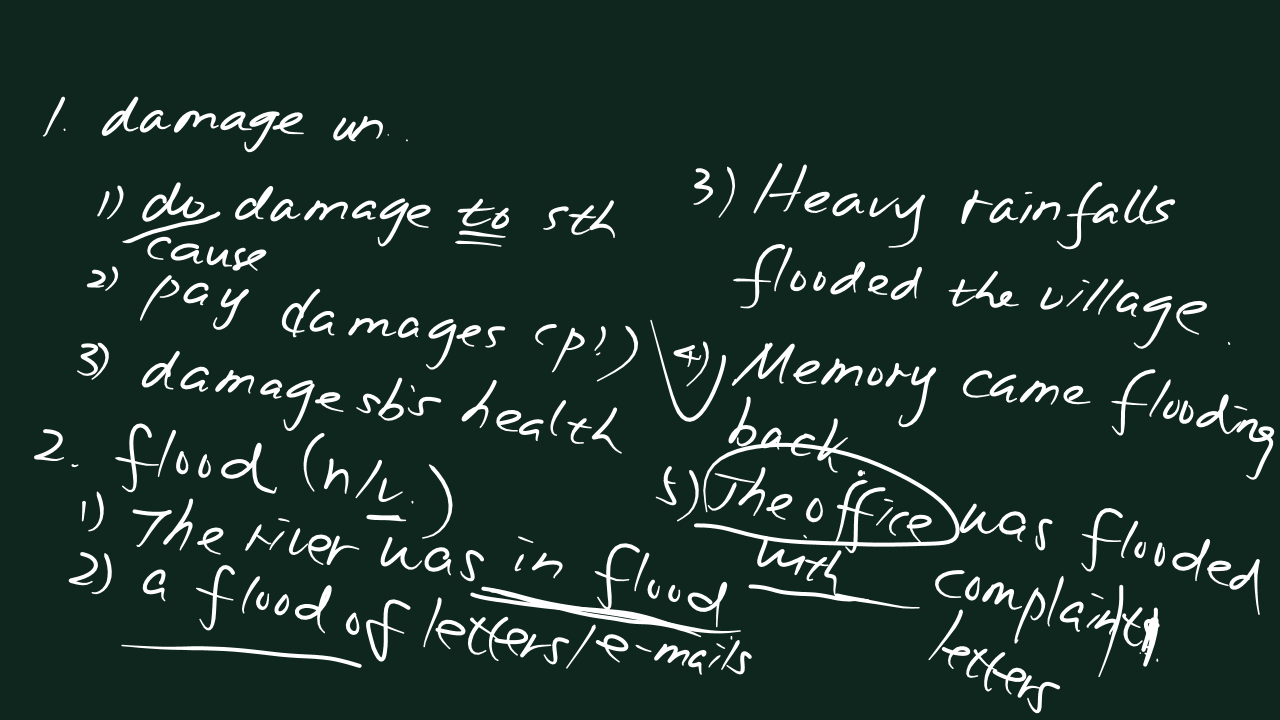 1. damage un.
1) do damage to sth
cause
2) pay damages (pl)
3) damage sb's health
2. flood (n/v.)
1) The river was in flood
2) a flood of letters/e-mails
3) Heavy rainfalls
flooded the village.
4) Memory came flooding
back.
5) The office was flooded
with complaint
letters